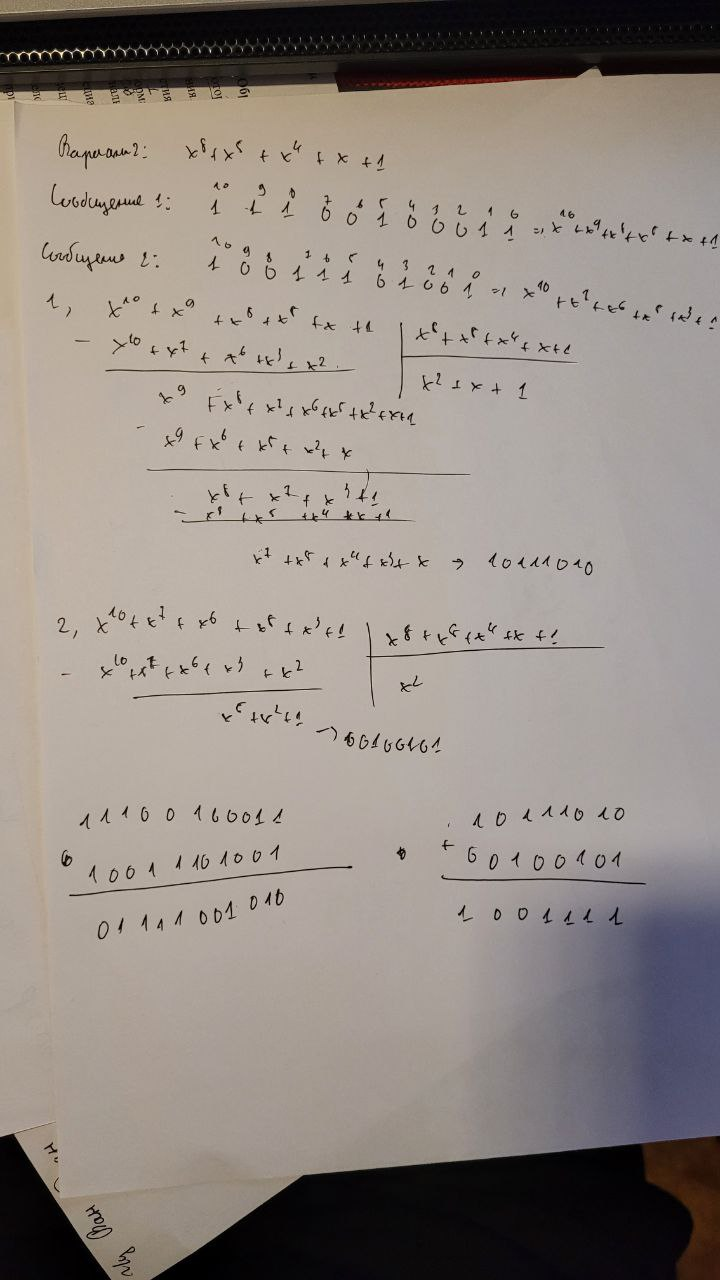 Вариант 2: x⁸ + x⁵ + x⁴ + x + 1
10 9 8 7 6 5 4 3 2 1 0
Сообщение 1: 1 1 1 0 0 1 0 0 0 1 1 => x¹⁰ + x⁹ + x⁸ + x⁵ + x + 1
10 9 8 7 6 5 4 3 2 1 0
Сообщение 2: 1 0 0 1 1 1 0 1 0 0 1 => x¹⁰ + x⁷ + x⁶ + x⁵ + x³ + 1
1, x¹⁰ + x⁹ + x⁸ + x⁵ + x + 1 | x⁸ + x⁵ + x⁴ + x + 1
- x¹⁰ + x⁷ + x⁶ + x³ + x² | x² + x + 1
x⁹ + x⁸ + x⁷ + x⁶ + x⁵ + x² + x + 1
- x⁹ + x⁶ + x⁵ + x² + x
x⁸ + x⁷ + x³ + 1
- x⁸ + x⁵ + x⁴ + x + 1
x⁷ + x⁵ + x⁴ + x³ + x → 10111010
2, x¹⁰ + x⁷ + x⁶ + x⁵ + x³ + 1 | x⁸ + x⁵ + x⁴ + x + 1
- x¹⁰ + x⁷ + x⁶ + x³ + x² | x²
x⁵ + x² + 1 → 00100101
1 1 1 0 0 1 0 0 0 1 1
1 0 0 1 1 1 0 1 0 0 1
0 1 1 1 1 0 0 1 0 1 0
1 0 1 1 1 0 1 0
+ 0 0 1 0 0 1 0 1
1 0 0 1 1 1 1